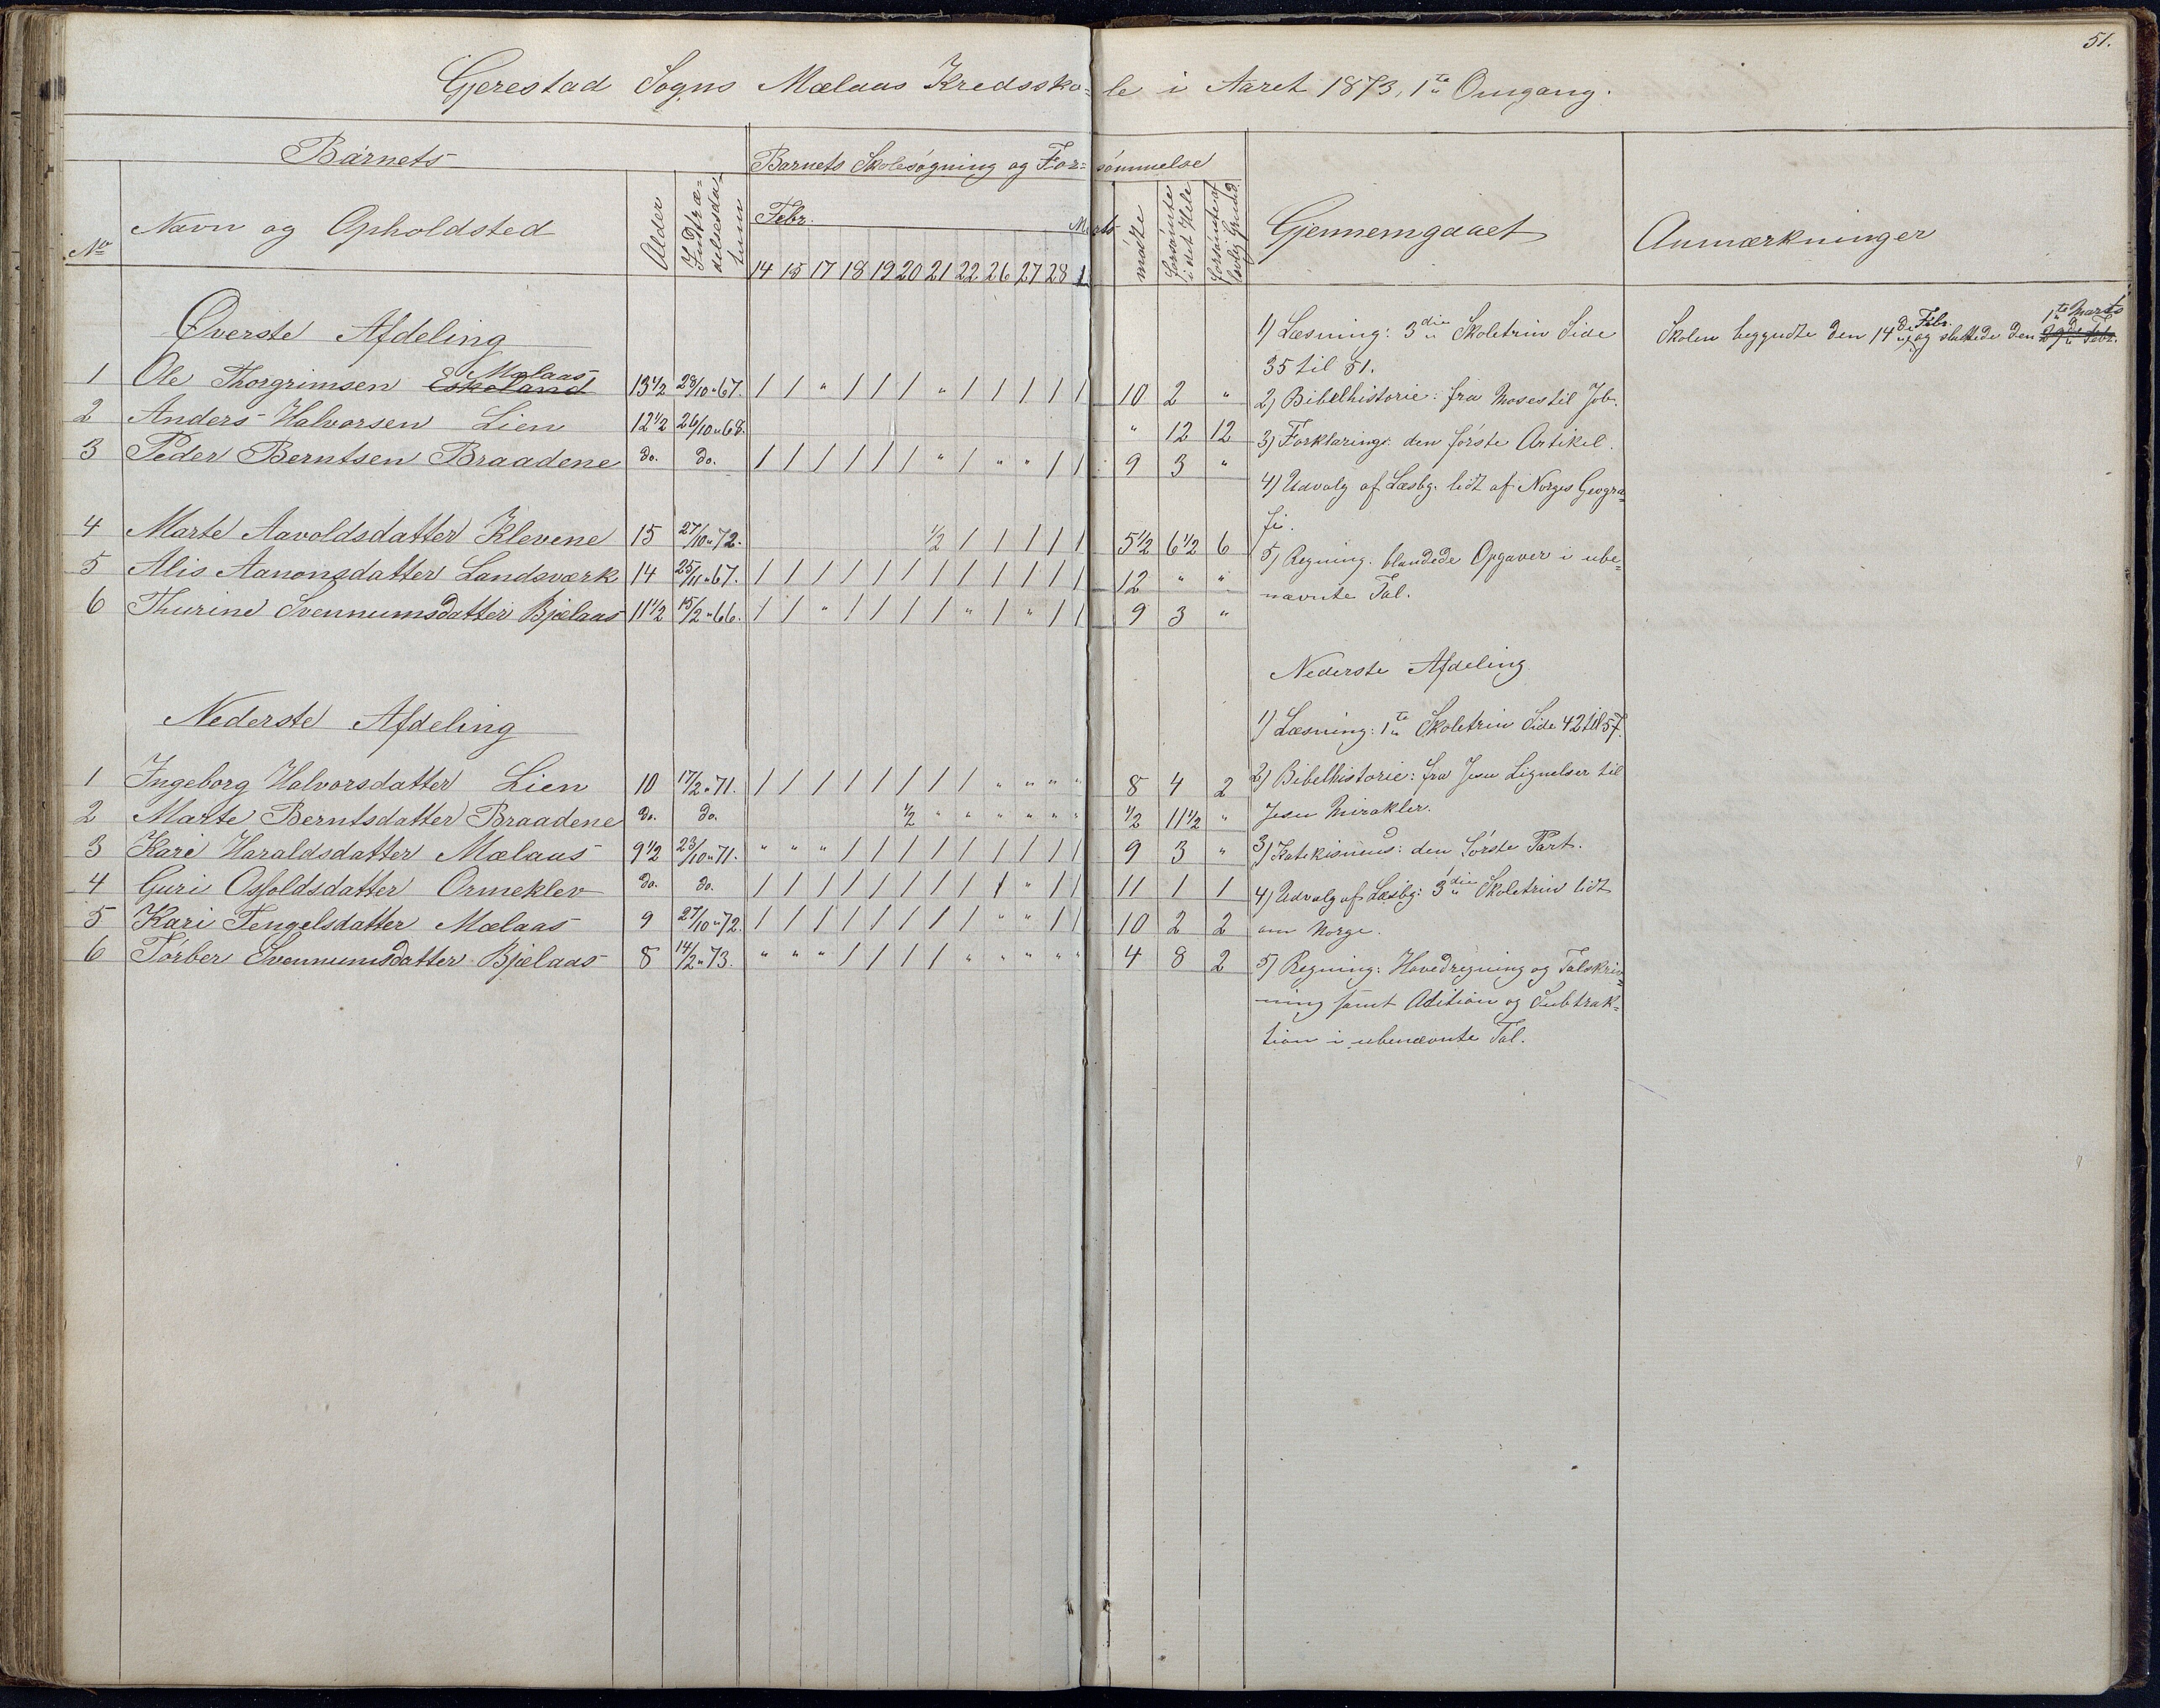 51.
Gjerestad Sogns Mælaas Kredssko=le i Aaret 1873, 1te Omgang.
Barnets
Barnets Skolesøgning og For=sømmelse
No
Navn og Opholdsted
Alder
Indtræ=
delsesda=
tum
Febr.
Marts
14 15 17 18 19 20 21 22 26 27 28 1
mødte
forsømte
i det Hele
forsømte af
lovlig Grund
Gjennemgaaet
Anmærkninger
Øverste Afdeling
1 Ole Thorgrimsen Eskeland Mælaas 13 1/2 28/10 " 67. / / " / / / " / / / / / 10 2 "
2 Anders Halvorsen Lien 12 1/2 26/10 " 68. " 12 12
3 Peder Berntsen Braadene do. do. / / / / / / " / " " / / 9 3 "
4 Marte Aavoldsdatter Klevene 15 27/10 " 72. 1/2 / / / / / 5 1/2 6 1/2 6
5 Alis Aanonsdatter Landsværk 14 25/11 " 67. / / / / / / / / / / / / 12 " "
6 Thurine Svennumsdatter Bjælaas 11 1/2 15/2 " 66. / / " / / / / " / " / / 9 3 "
Nederste Afdeling
1 Ingeborg Halvorsdatter Lien 10 17/2 " 71. / / / / / / / / " " " " 8 4 2
2 Marte Berntsdatter Braadene do. do. 1/2 " " " " " " 1/2 11 1/2 "
3 Kari Haraldsdatter Mælaas 9 1/2 23/10 " 71. " " " / / / / / / / / / 9 3 "
4 Guri Osfoldsdatter Ormeklev do. do. / / / / / / / / / " / / 11 1 1
5 Kari Tengelsdatter Mælaas 9 27/10 " 72. / / / / / / / / " " / / 10 2 2
6 Tørber Svennumsdatter Bjælaas 8 14/2 " 73. " " " / / / / " " " " " 4 8 2
1) Læsning: 3die Skoletrin Side
35 til 81.
2) Bibelhistorie: fra Moses til Job.
3) Forklaring: den første Artikel.
4) Udvalg af Læsbg. lidt af Norges Geogra=
fi.
5) Regning. blandede Opgaver i ube=
nævnte Tal.
Nederste Afdeling
1) Læsning: 1te Skoletrin Side 42 til 57.
2) Bibelhistorie: fra Jesu Lignelser til
Jesu Mirakler.
3) Katekismus: den første Part.
4) Udvalg af Læsbg: 3die Skoletrin lidt
om Norge.
5) Regning: Hovedregning og Talskriv=
ning samt Adition og Subtrak=
tion i ubenævnte Tal.
Skolen begyndte den 14de Febr. og sluttede den 1te Marts